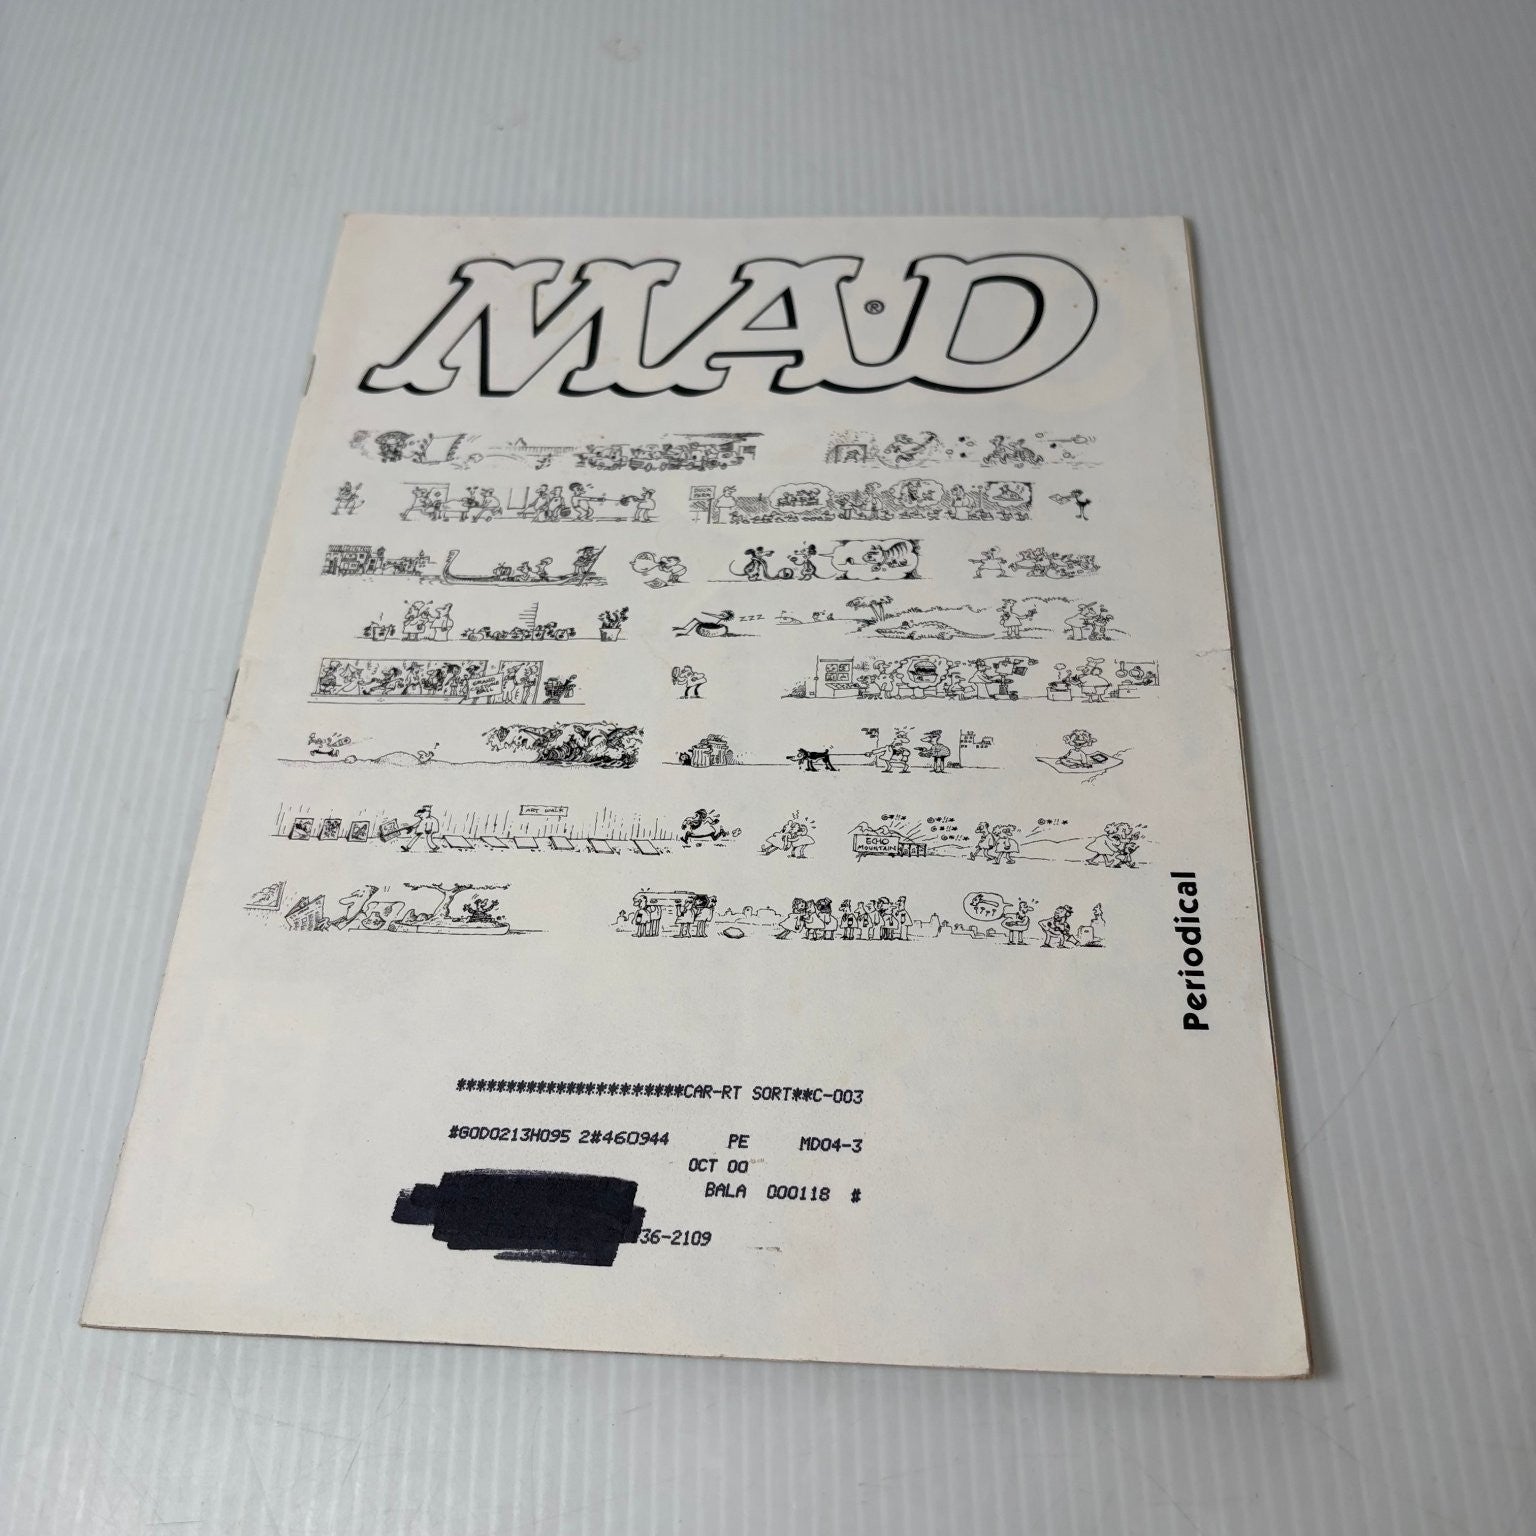 MAD
®
ART WALK
@*!!*
@*!!*
@*!!*
@*!!*
@*!!*
ECHO
MOUNTAIN
Periodical
***********************CAR-RT SORT**C-003
#GOD0213H095 2#460944 PE MD04-3
OCT 00
BALA 000118 #
36-2109